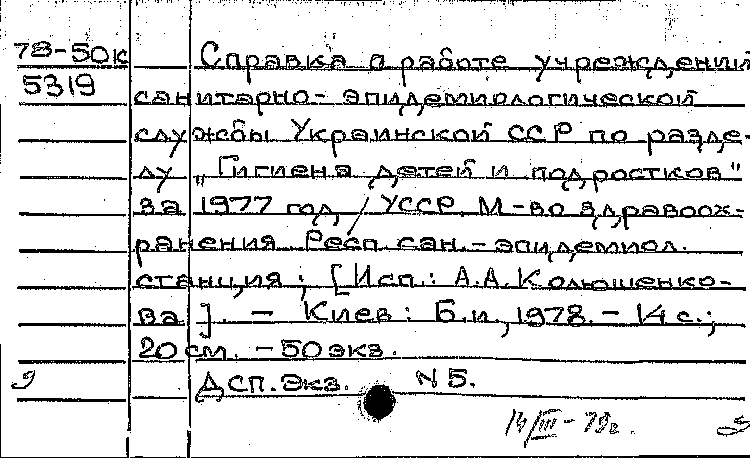 78-50к Справка о работе учреждений
5319 санитарно-эпидемиологической
службы Украинской ССР по разде-
лу „Гигиена детей и подростков"
за 1977 год / УССР. М-во здравоох-
ранения. Респ. сан.-эпидемиол.
станция; [Исп.: А.А. Колюшенко-
ва]. - Киев: Б.и., 1978. - 14 с.;
20 см. - 50 экз.
Дсп. Экз. N 5.
14/III-79г.